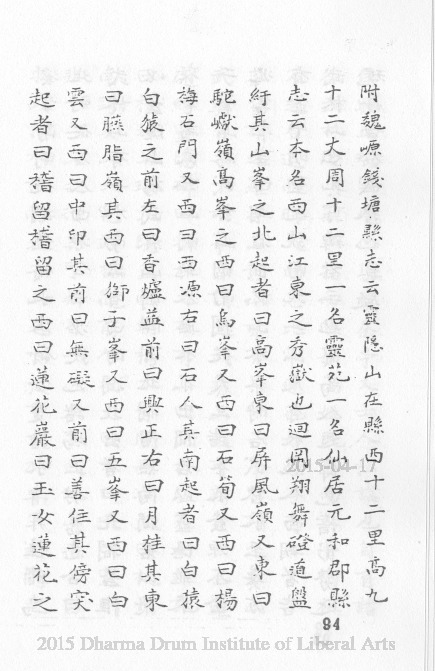 附魏㟲錢塘縣志云靈隱山在縣西十二里高九
十二丈周十二里一名靈苑一名仙居元和郡縣
志云本名西山江東之秀嶽也迴岡翔舞磴道盤
紆其山峯之北起者曰高峯東曰屏風嶺又東曰
駝巘嶺高峯之西曰烏峯又西曰石筍又西曰楊
梅石門又西曰西源右曰石人其南起者曰白猿
白猿之前左曰香爐益前曰興正右曰月桂其東
曰臙脂嶺其西曰御子峯又西曰五峯又西曰白
雲又西曰中印其前曰無礙又前曰善住其傍突
起者曰稽留稽留之西曰蓮花巖曰玉女蓮花之
94
2015-04-17
2015 Dharma Drum Institute of Liberal Arts